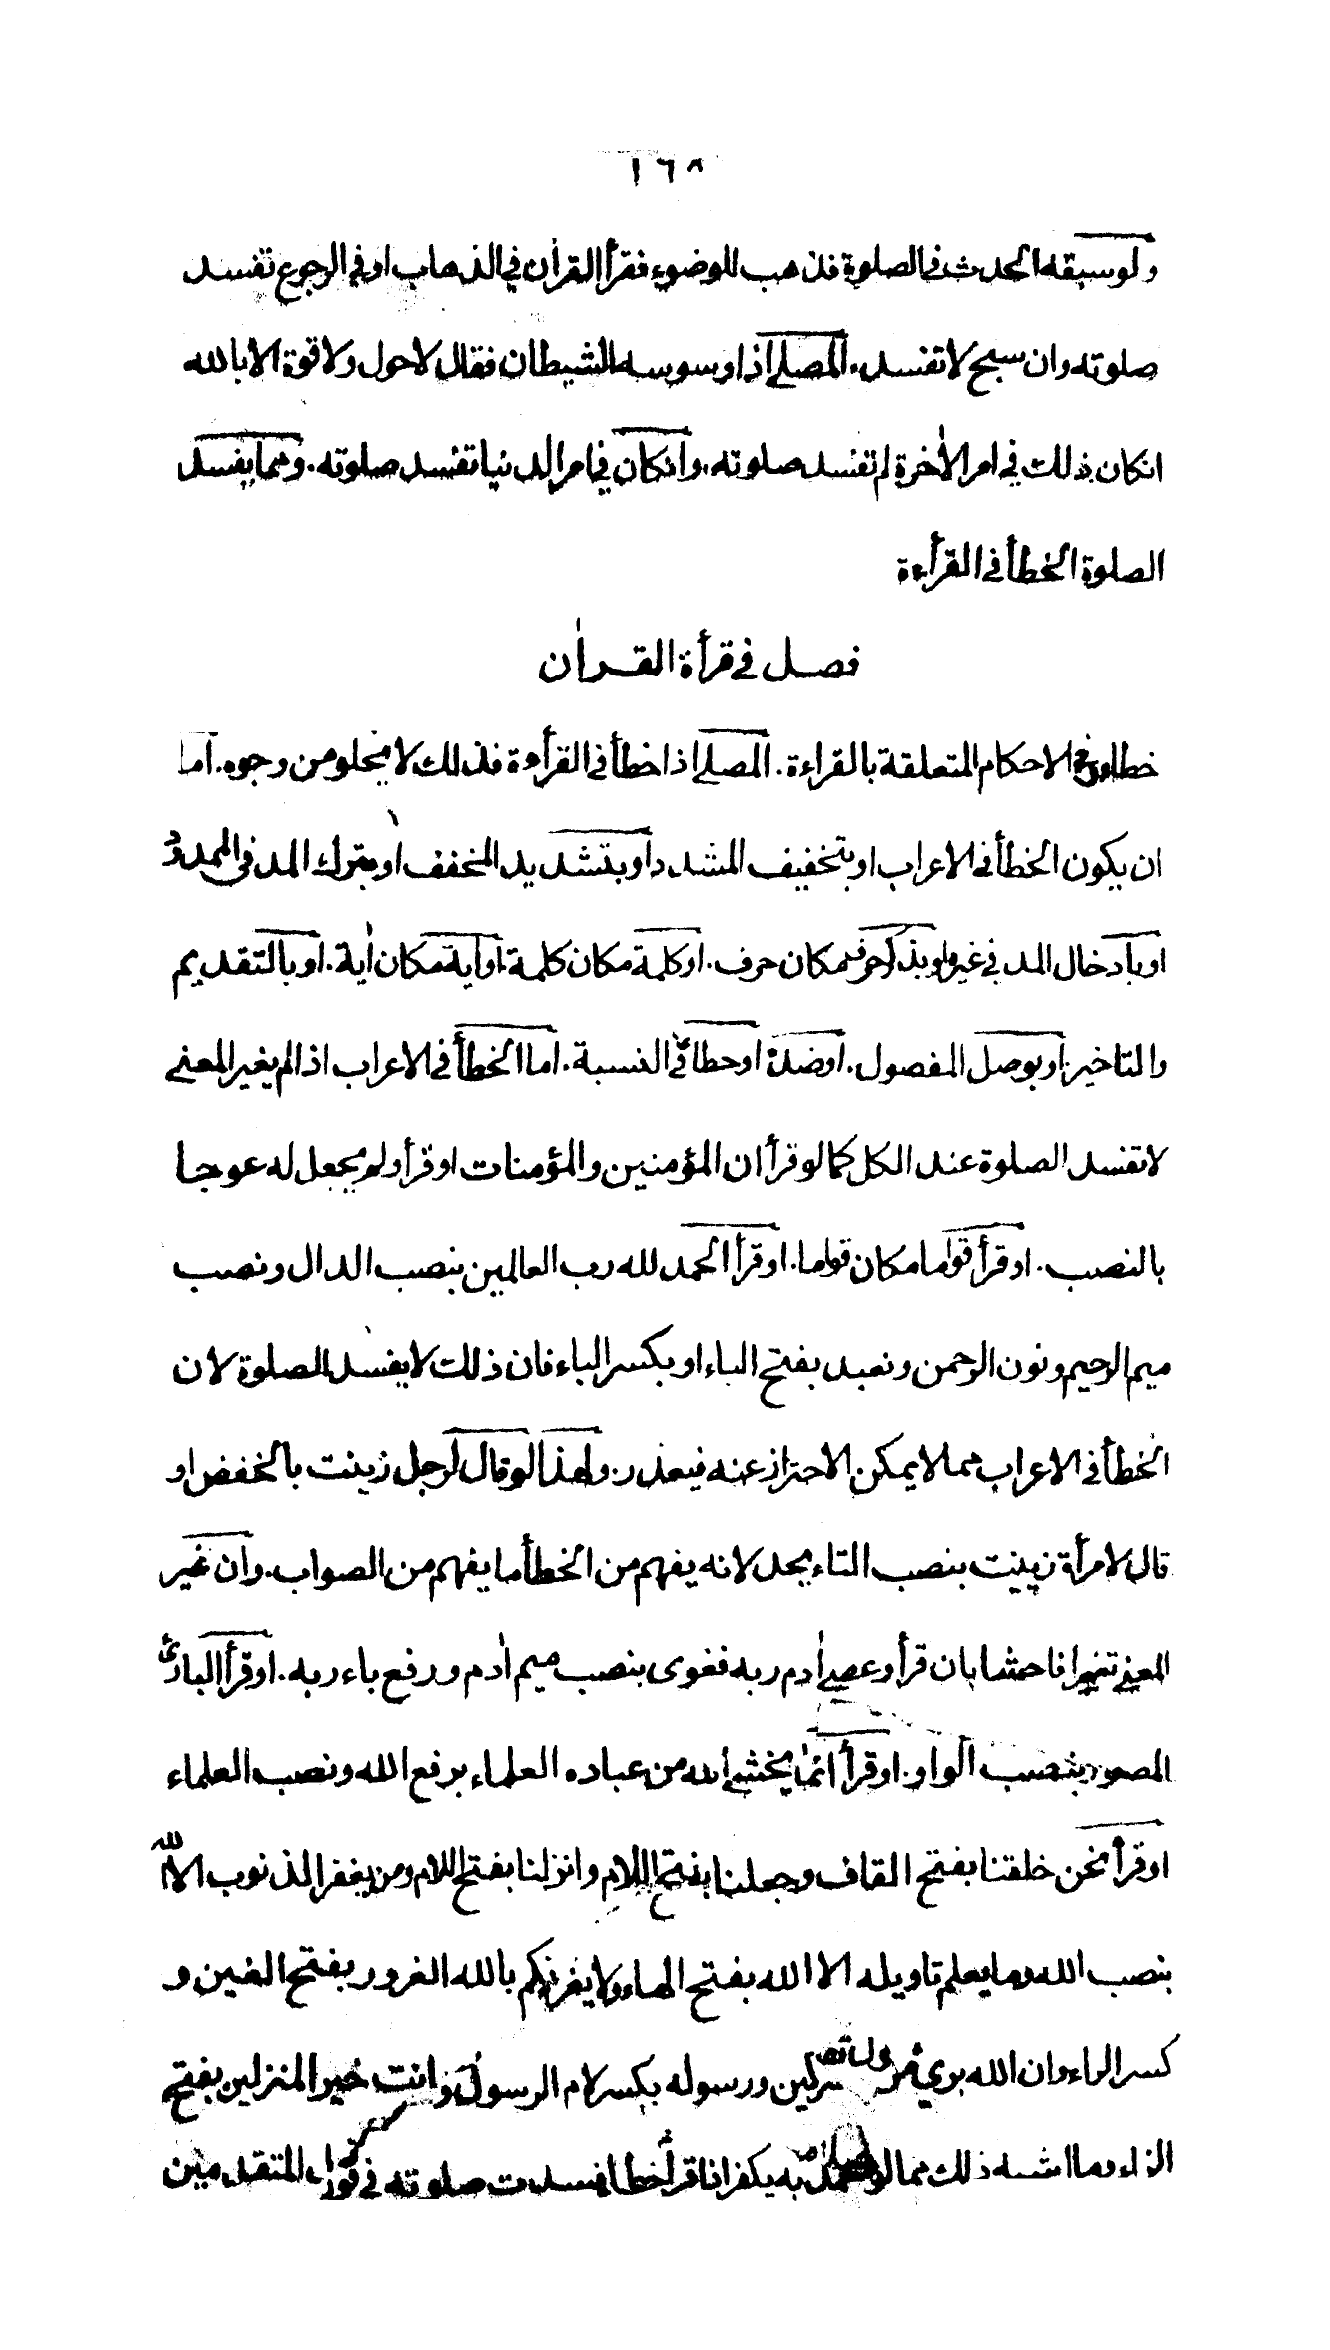 ١٦٨
ولو سبقه الحدث في الصلوة فذهب للوضوء فقرأ القرأن في الذهاب او في الرجوع تفسد
صلوته وان سبح لا تفسد. المصلے اذا وسوسه الشيطان فقال لا حول ولا قوة الا بالله
انكان ذلك في امر الأخرة لم تفسد صلوته. وانكان في امر الدنيا تفسد صلوته. ومما يفسد
الصلوة الخطأ في القرأءة
فصل في قرأة القرأن
خطا وفي الاحكام المتعلقة بالقراءة. المصلے اذا خطأ في القرأءة فذلك لا يخلو من وجوه. اما
ان يكون الخطأ في الاعراب او بتخفيف المشدد او بتشديد المخفف او بترك المد في الممدود
او بأدخال المد في غيره او بذكر حرف مكان حرف. او كلمة مكان كلمة او أية مكان أية. او بالتقديم
والتاخير. او بوصل المفصول. او ضده او خطأ في النسبة. اما الخطأ في الاعراب اذا لم يغير المعنى
لا تفسد الصلوة عند الكل كما لو قرأ ان المؤمنين والمؤمنات او قرأ ولم يجعل له عوجا
بالنصب. او قرأ قواما مكان قواما. او قرأ الحمد لله رب العالمين بنصب الدال ونصب
ميم الرحيم ونون الرحمن ونعبد بفتح الباء او بكسر الباء فان ذلك لا يفسد الصلوة لان
الخطأ في الاعراب مما لا يمكن الاحتراز عنه فيعذر. ولهذا لو قال لرجل زينت بالخفض او
قال لامرأة زنيت بنصب التاء يحد لانه يفهم من الخطأ ما يفهم من الصواب. وان غير
المعنى تغييرا فاحشا بان قرأ وعصے أدم ربه فغوى بنصب ميم أدم ورفع باء ربه. او قرأ البارئ
المصور بنصب الواو. او قرأ انما يخشى الله من عباده العلماء برفع الله ونصب العلماء
او قرأ نحن خلقنا بفتح القاف وجعلنا بفتح اللام وانزلنا بفتح اللام ومن يغفر الذنوب الا الله
بنصب الله وما يعلم تاويله الا الله بفتح الهاء ولا يغرنكم بالله الغرور بفتح الغين و
كسر الراء وان الله بريء من المشركين ورسوله بكسر لام الرسول وانت خير المنزلين بفتح
الزاء وما اشبه ذلك مما لو تعمد به يكفر اذا قرأ خطا فسدت صلوته في قول المتقدمين